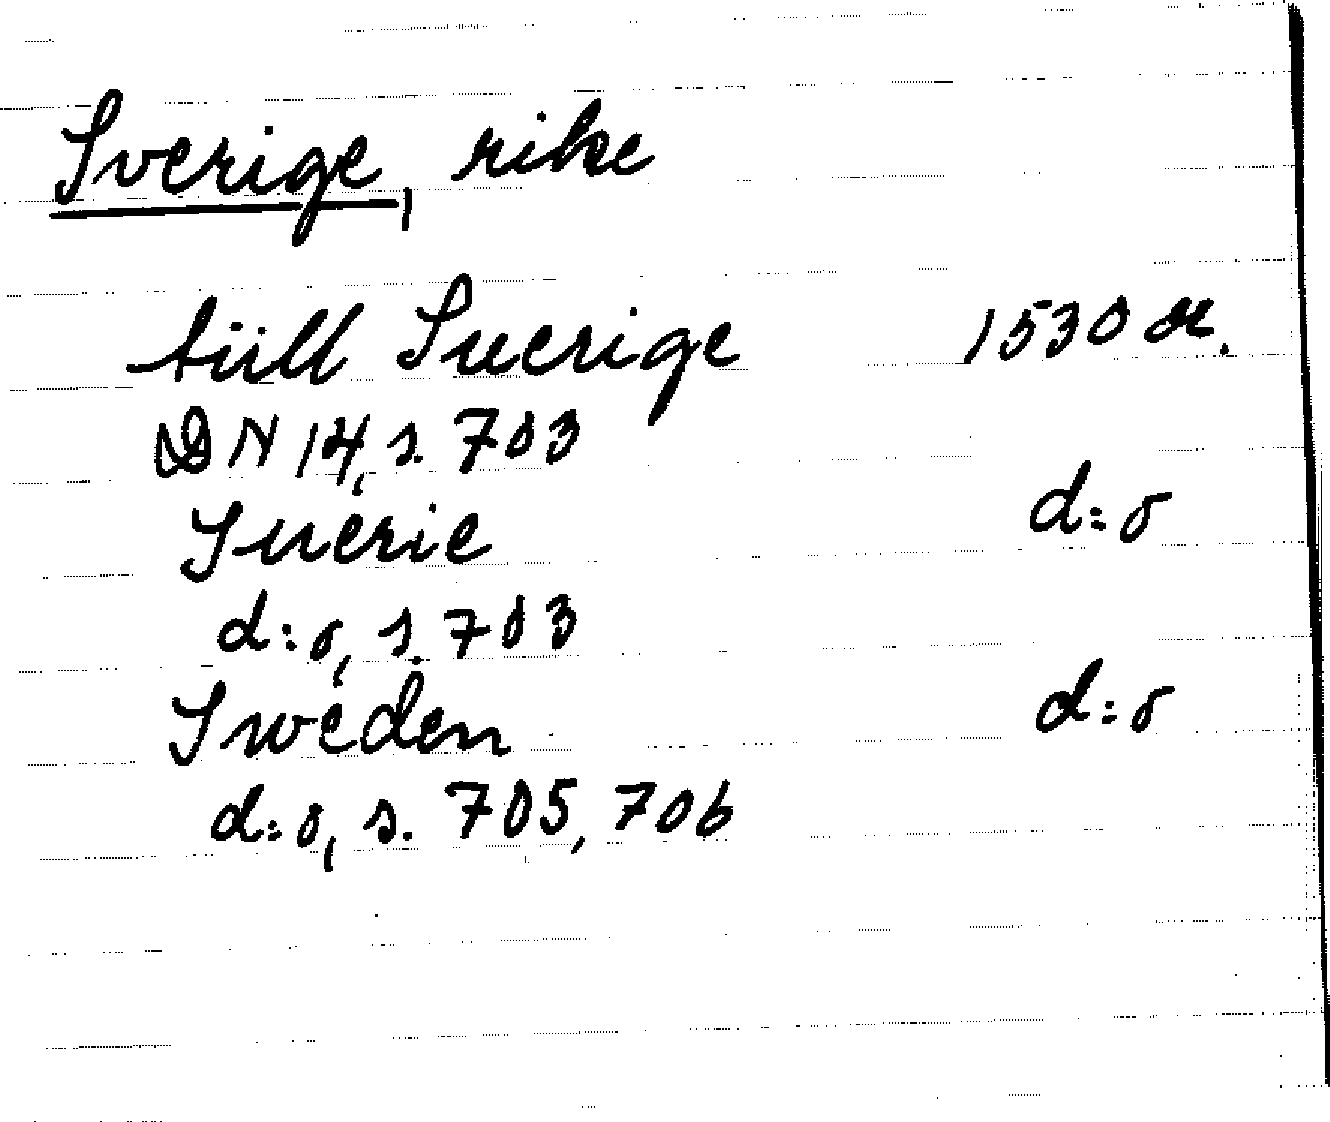 Sverige, rike
tiill Suerige 1530 or.
DN 14, s. 703
Suerie d:o
d:o, s. 703
Sweden d:o
d:o, s. 705, 706